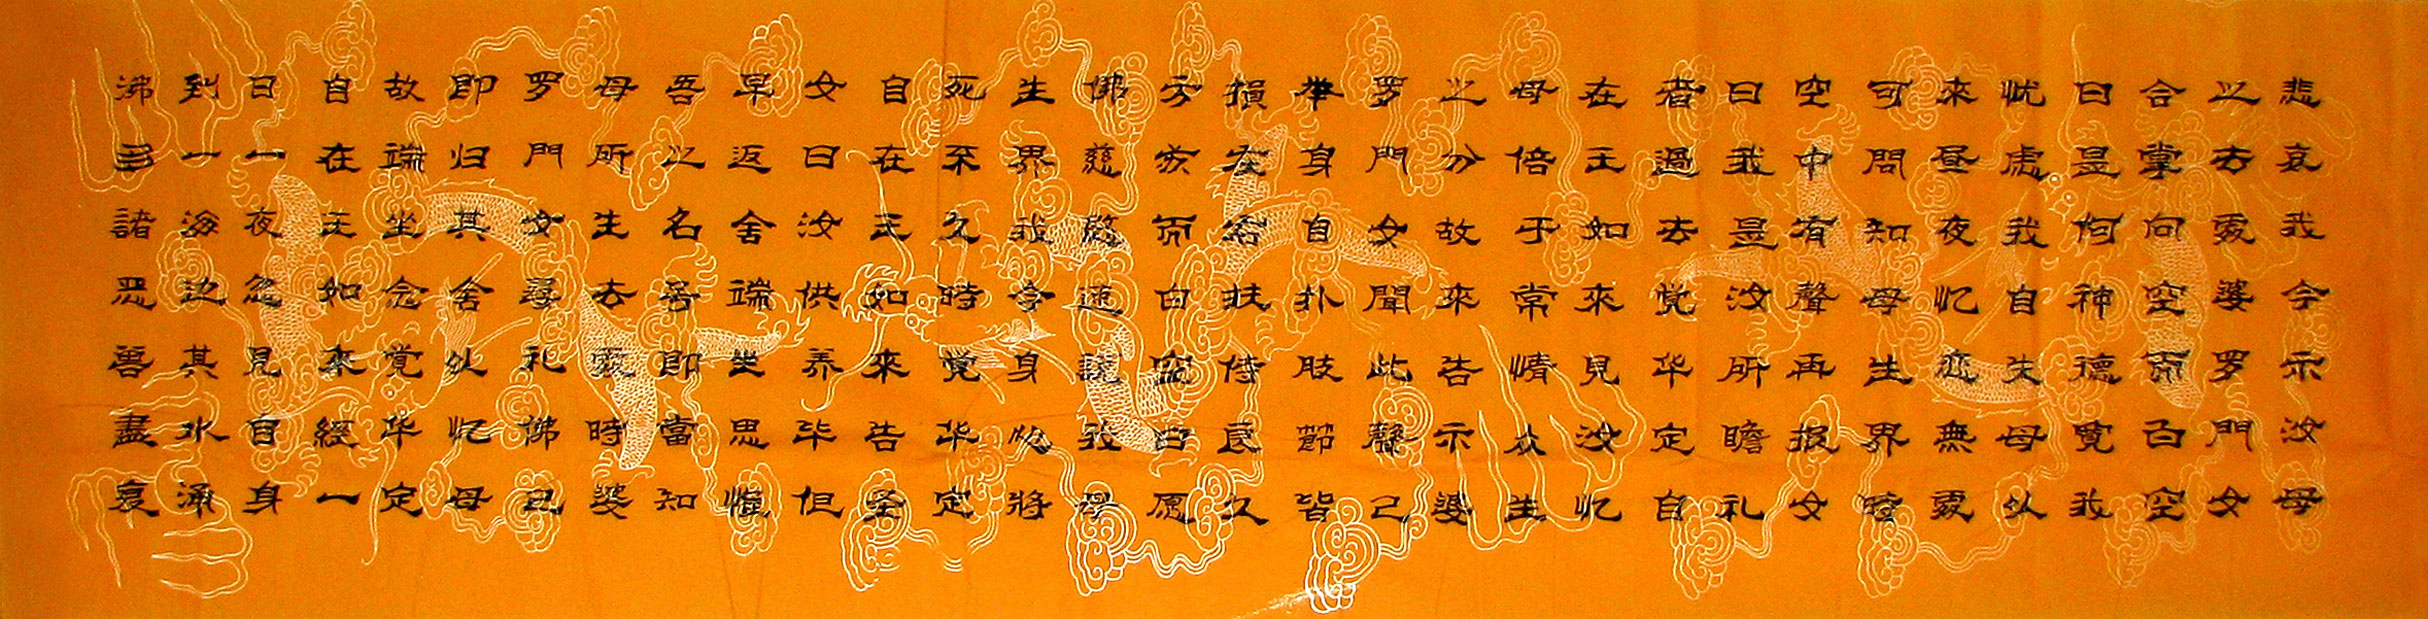 悲哀我今示汝母
之去處婆罗門女
合掌向空而白空
曰是何神德覧我
忧虑我自失母以
來昼夜忆恋無處
可問知母生界時
空中有聲再报女
曰我是汝所瞻礼
者過去觉华定自
在王如來見汝忆
母倍于常情众生
之分故來告示婆
罗門女聞此聲已
举身自扑肢節皆
損左右扶侍良久
方苏而白空曰愿
佛慈愍速說我母
生界我今身心將
死不久時觉华定
自在王如來告圣
女曰汝供养毕但
早返舍端坐思惟
吾之名号即當知
母所生去處時婆
罗門女尋礼佛已
即归其舍以忆母
故端坐念觉华定
自在王如來經一
日一夜忽見自身
到一海边其水涌
沸多諸恶兽盡复